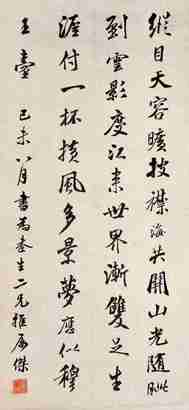 縱目天容曠披襟海共開山光隨
到雲影度江來世界漸雙足生
涯付一杯風多景夢應似穆
王臺 己未八月書為奎生二兄雅屬 傑